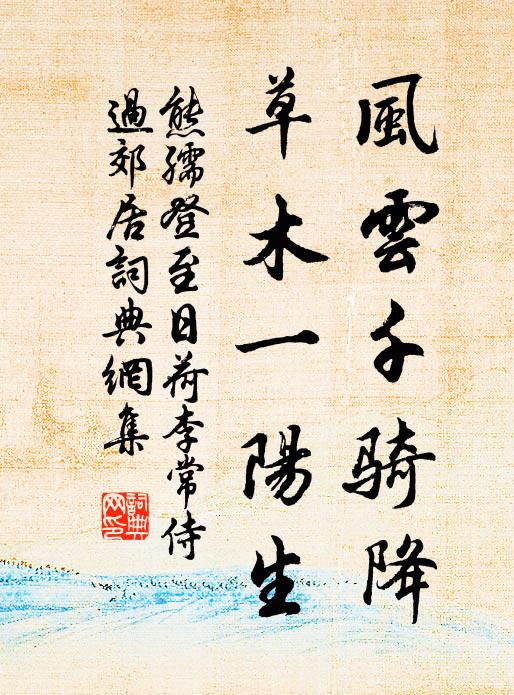 風雲千騎降
草木一陽生
熊孺登至日荷李常侍
過郊居詞典網集
詞典
网印